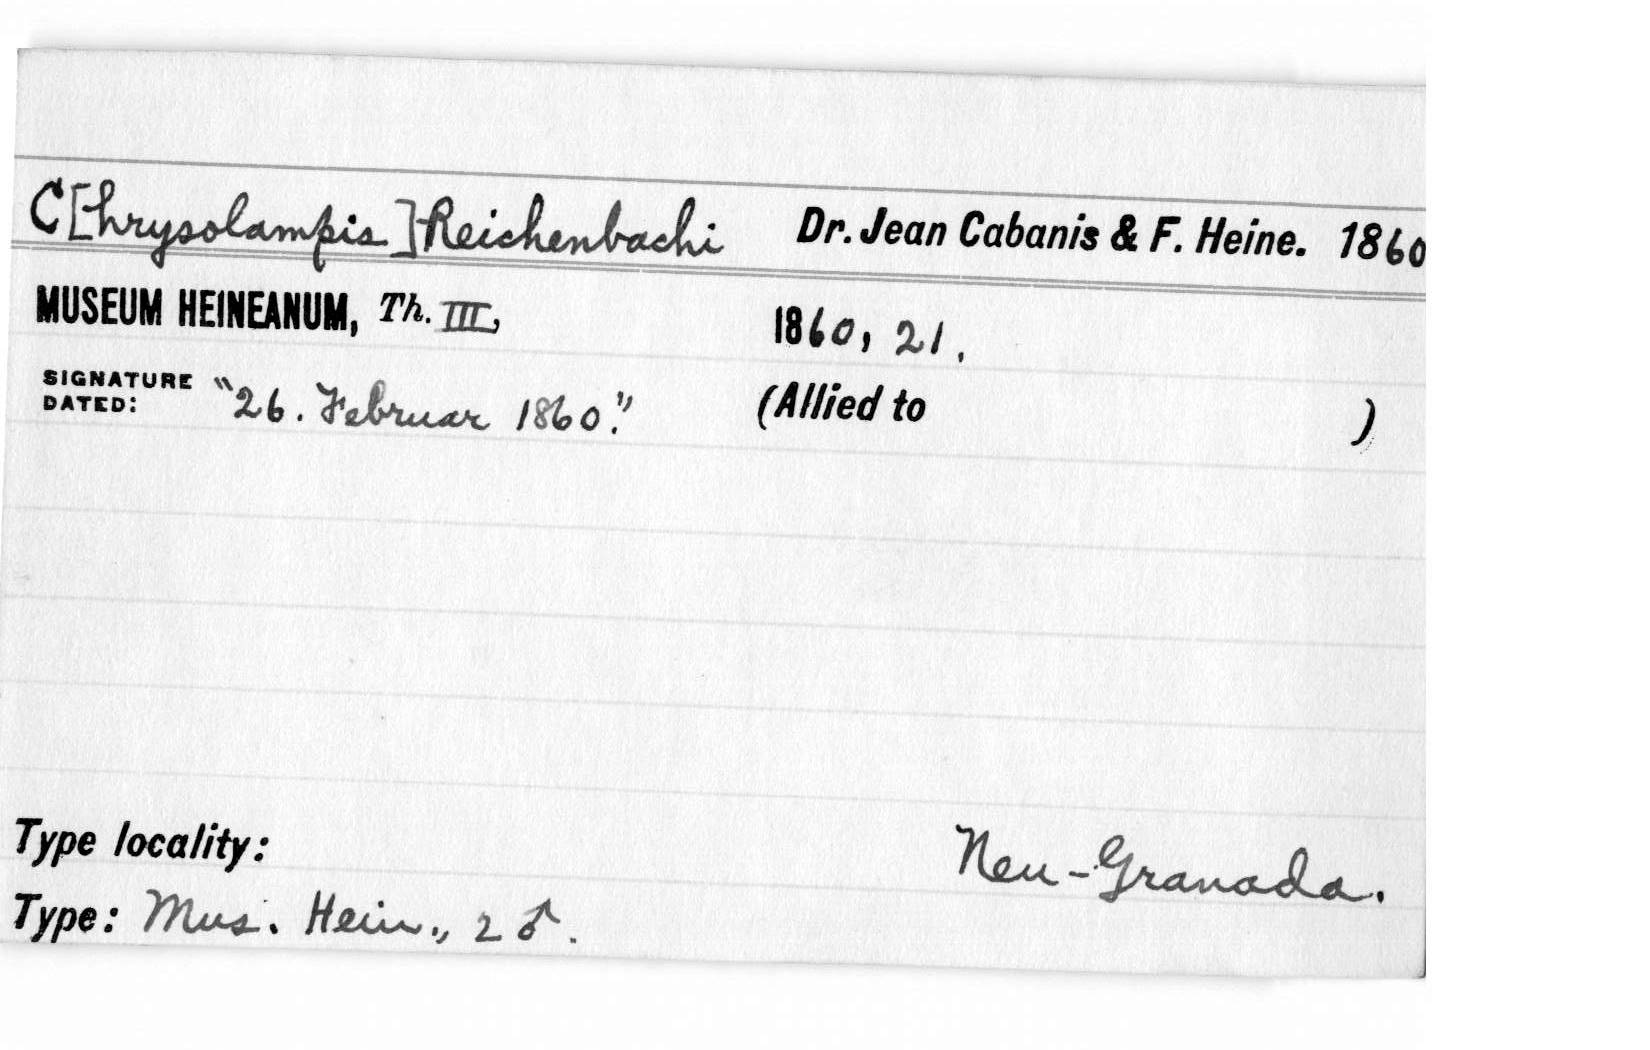 C[hrysolampis] Reichenbachi Dr. Jean Cabanis & F. Heine. 1860
MUSEUM HEINEANUM, Th. III, 1860, 21.
SIGNATURE DATED: "26. Februar 1860." (Allied to )
Type locality: Neu-Granada.
Type: Mus. Hein., 2 ♂.